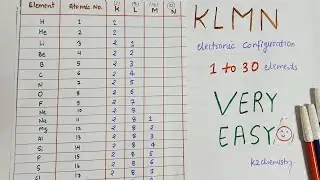 Element Atomic No. K L M N
H 1 1
He 2 2
Li 3 2 1
Be 4 2 2
B 5 2 3
C 6 2 4
N 7 2 5
O 8 2 6
F 9 2 7
Ne 10 2 8
Na 11 2 8 1
Mg 12 2 8 2
Al 13 2 8 3
Si 14 2 8 4
P 15 2 8 5
S 16 2 8 6
Cl 17 2 8 7
KLMN
electronic configuration
1 to 30 elements
VERY
EASY
k2chemistry